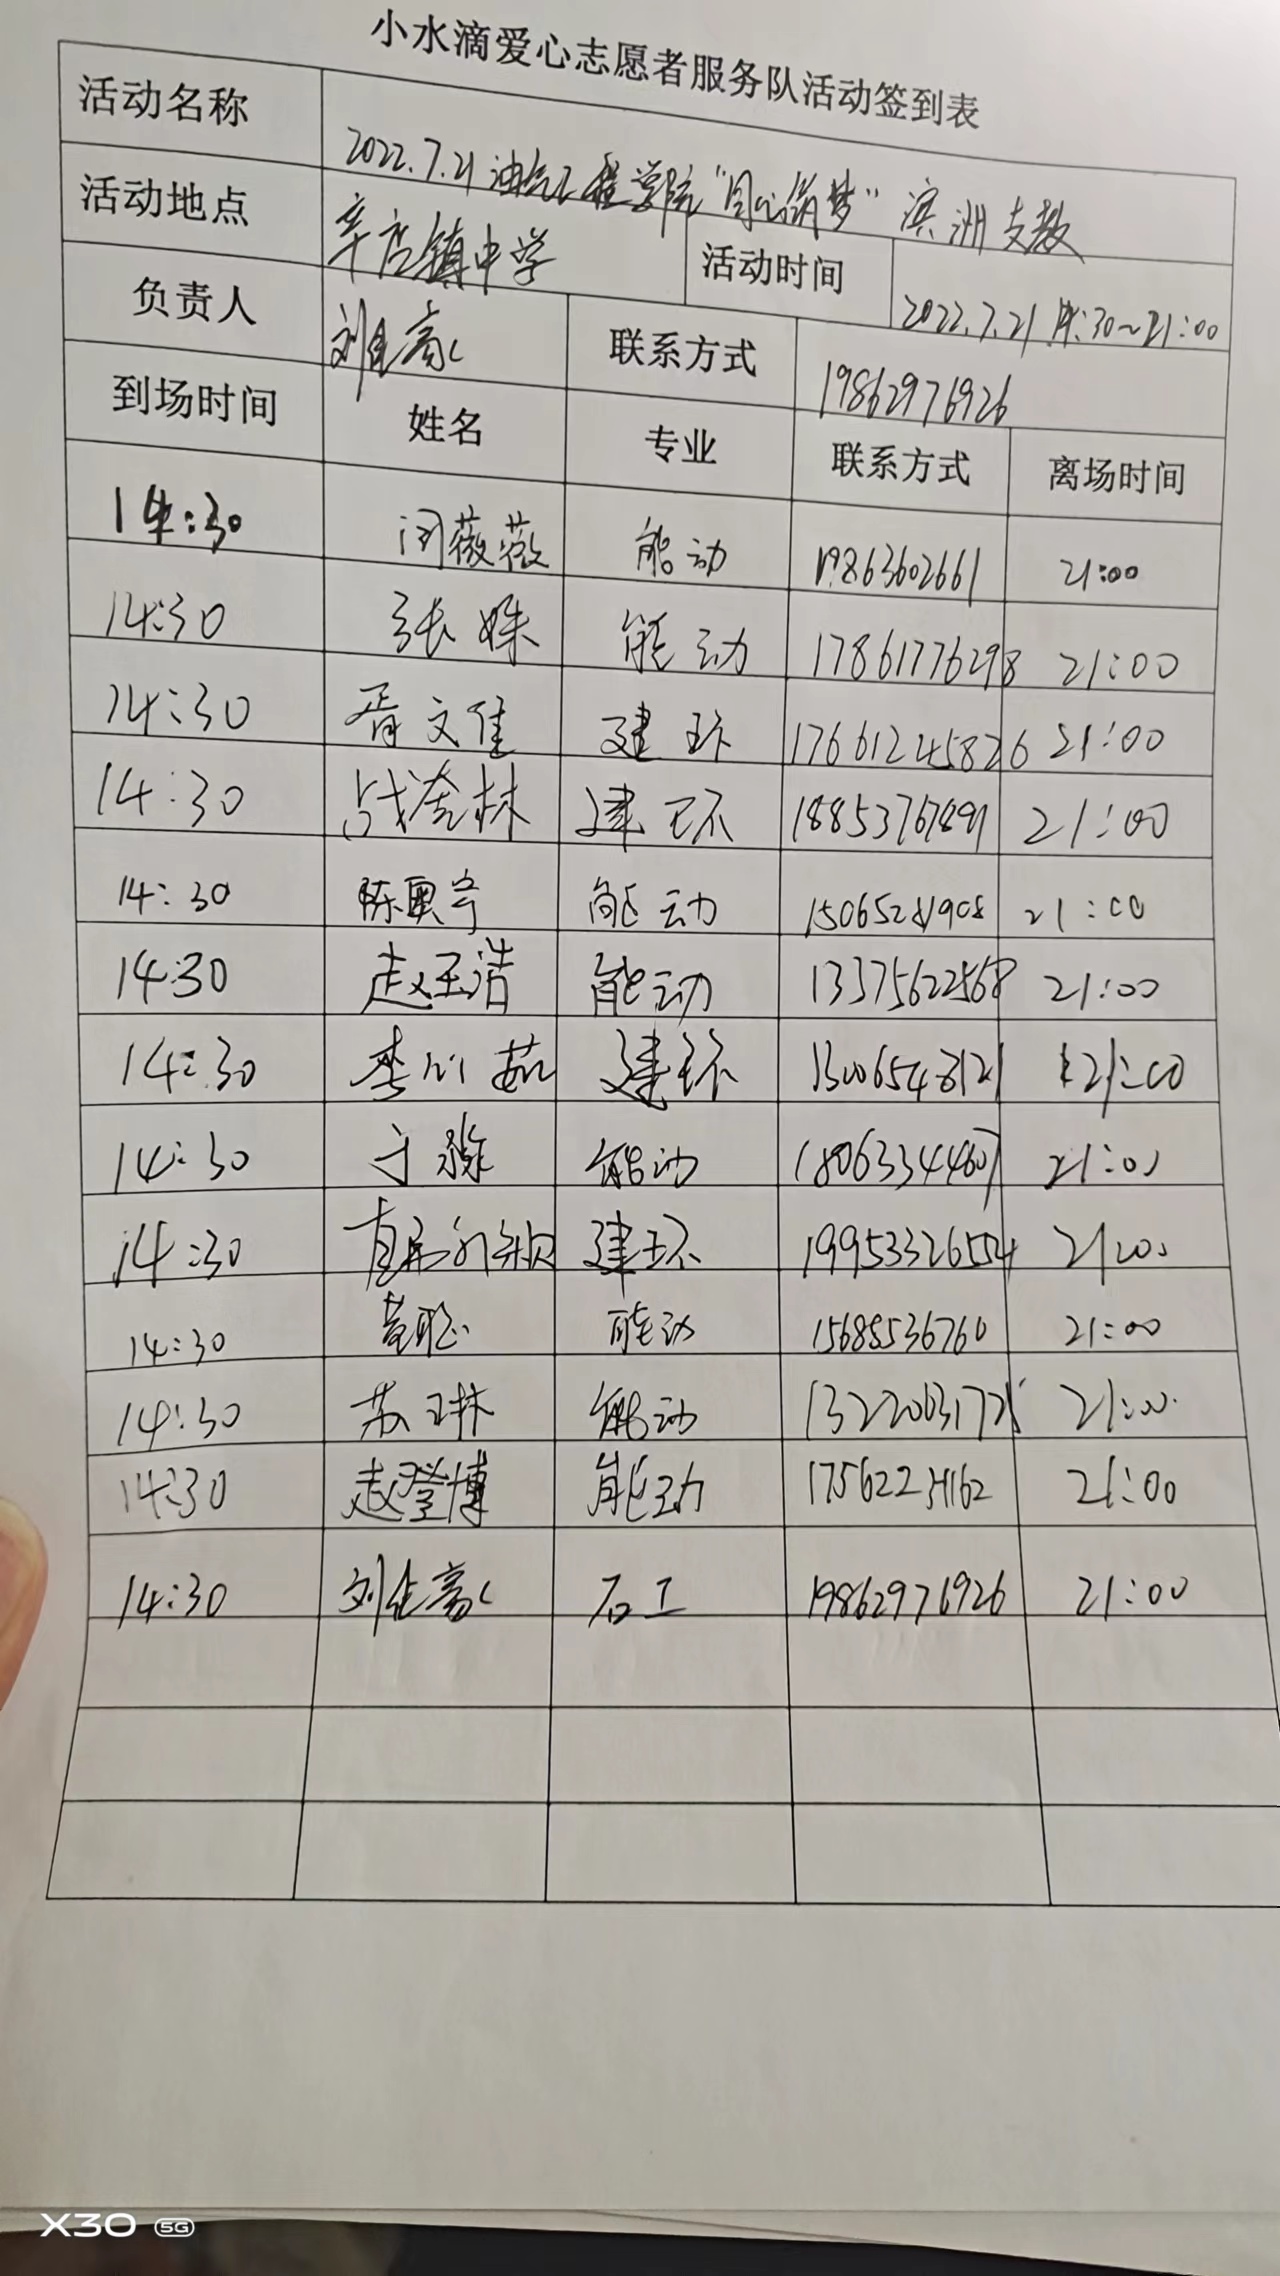 小水滴爱心志愿者服务队活动签到表
活动名称 2022.7.21 油气工程学院“同心筑梦”滨洲支教
活动地点 辛店镇中学 活动时间 2022.7.21 14:30~21:00
负责人 刘 联系方式 19862976926
到场时间 姓名 专业 联系方式 离场时间
14:30 闵薇薇 能动 19863602661 21:00
14:30 张姝 能动 17861776298 21:00
14:30 胥文佳 建环 17661245826 21:00
14:30 战 林 建环 18853767891 21:00
14:30 陈奥宁 能动 15065281908 21:00
14:30 赵玉浩 能动 13375622568 21:00
14:30 李 茹 建环 21:00
14:30 于 能动 18063344607 21:00
14:30 建环 19953326554 21:00
14:30 黄聪 能动 15685536760 21:00
14:30 苏琳 能动 21:00
14:30 赵登博 能动 21:00
14:30 刘 石工 19862976926 21:00
X30 5G